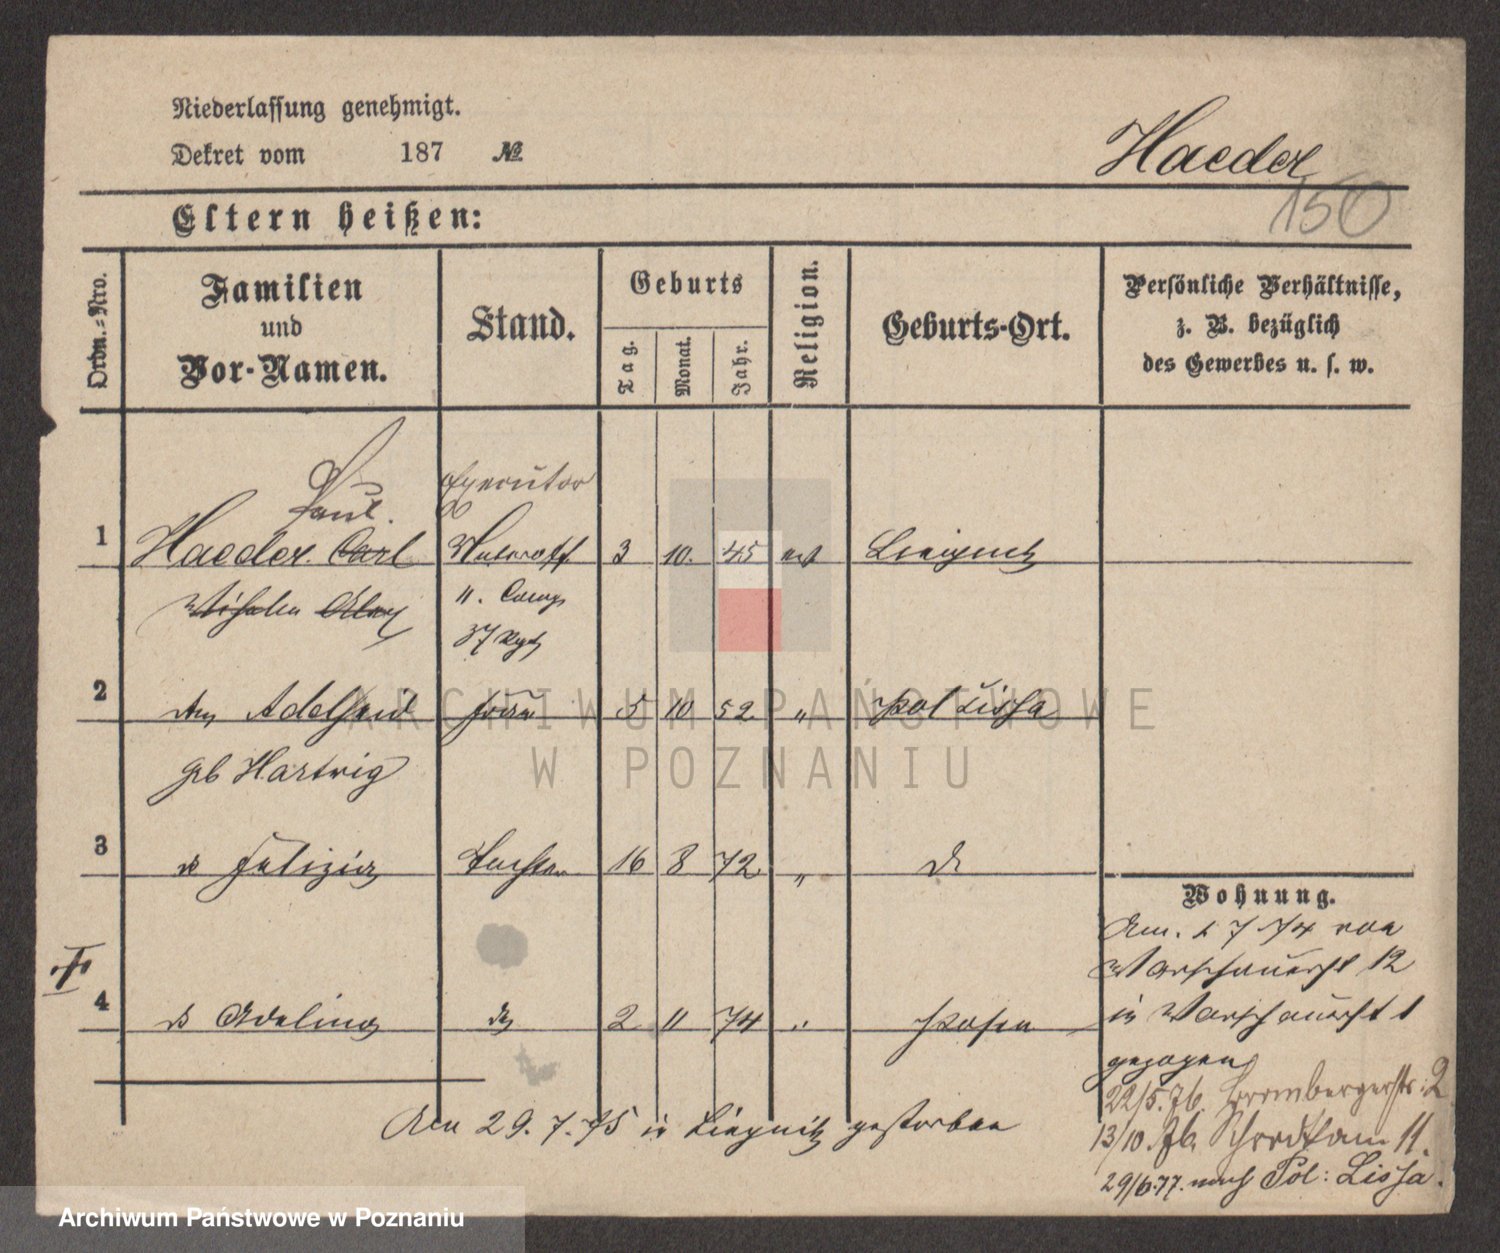 Niederlassung genehmigt.
Dekret vom 187 No
Haeder
150
Eltern heißen:
Ordn.=Nro.
Familien
und
Vor-Namen.
Stand.
Geburts
Tag.
Monat.
Jahr.
Religion.
Geburts-Ort.
Persönliche Verhältnisse,
z. B. bezüglich
des Gewerbes u. s. w.
Paul. Executor
1 Haeder Carl Unteroff 3 10. 45 ev Liegnitz
11. Comp
37 Rgt
2 Adelheid Frau 5 10 52 " Pol Lissa
geb Hartwig
3 do Felizia Tochter 16 8 72 " do
4 do Adeline do 2 11 74 " Posen
Wohnung.
Am. 1 7 74 von
Warschauerst 12
in Warschauerst 1
gezogen
22/5.76. Brombergerstr: 2
13/10.76. Schrodkam 11.
29/6.77. nach Pol: Lissa.
Am 29.7.75 in Liegnitz gestorben
ARCHIWUM PAŃSTWOWE
W POZNANIU
Archiwum Państwowe w Poznaniu